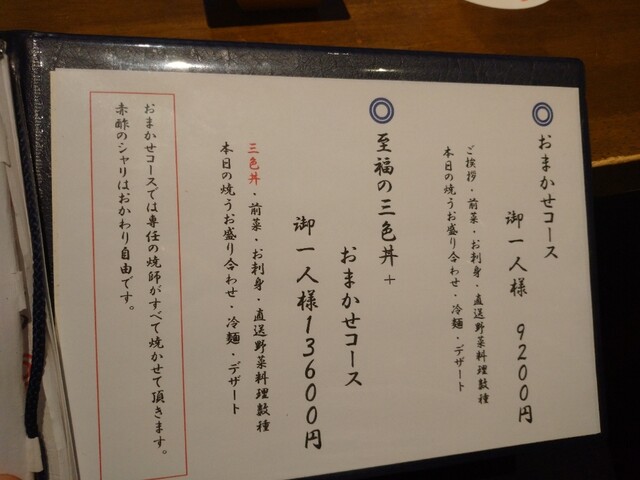 ◎おまかせコース
御一人様 9200円
ご挨拶・前菜・お刺身・直送野菜料理数種
本日の焼うお盛り合わせ・冷麺・デザート
◎至福の三色丼+
おまかせコース
御一人様13600円
三色丼・前菜・お刺身・直送野菜料理数種
本日の焼うお盛り合わせ・冷麺・デザート
おまかせコースでは専任の焼師がすべて焼かせて頂きます。
赤酢のシャリはおかわり自由です。